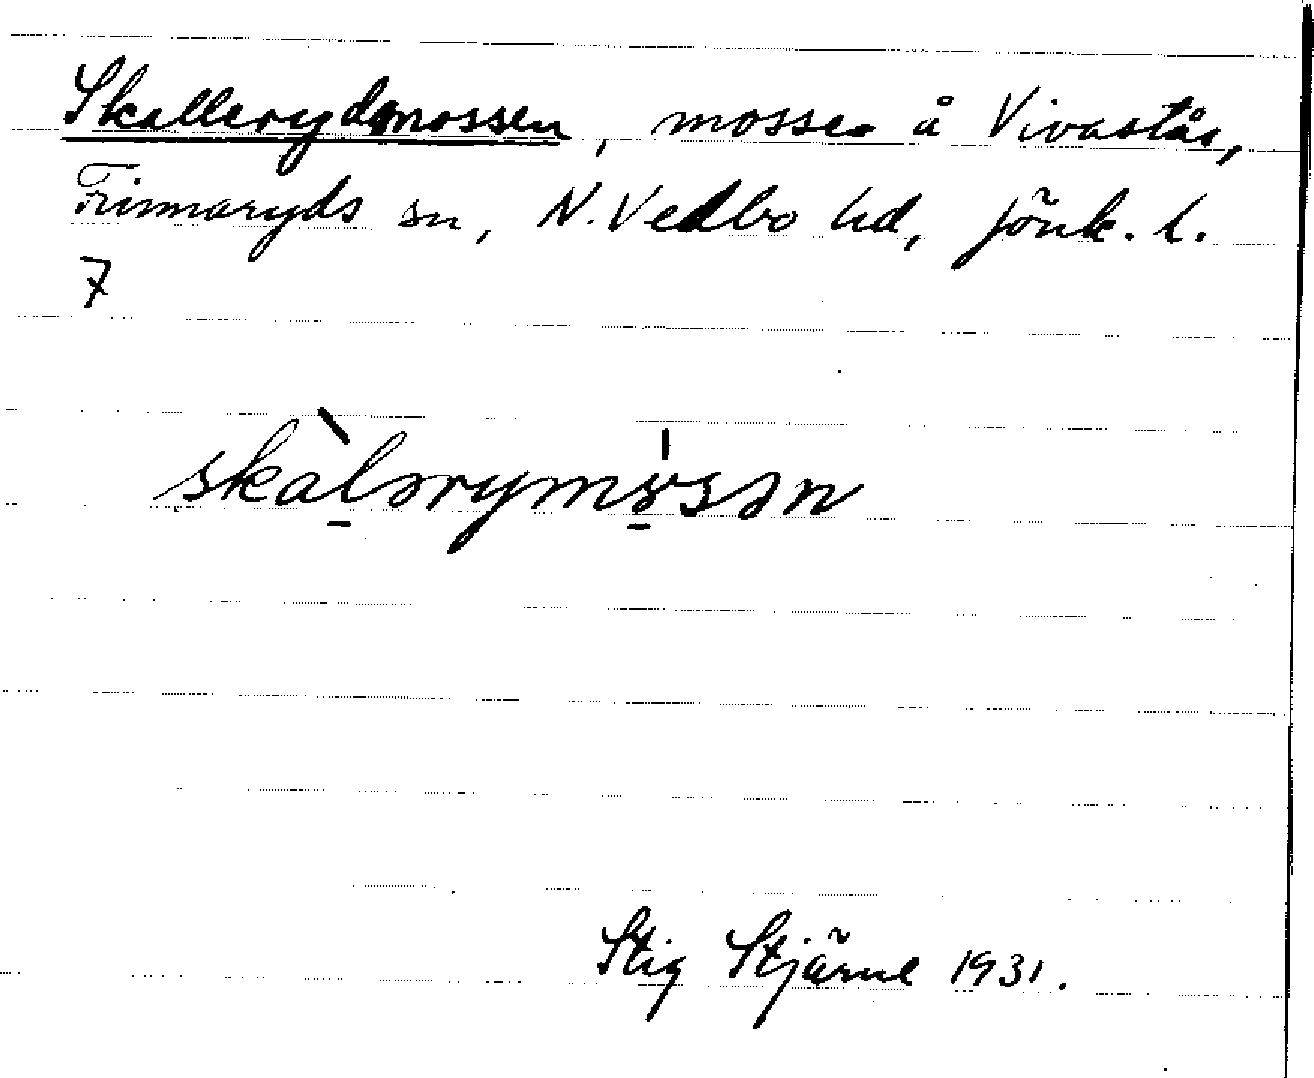 Skallerydsmossen, mosse å Vivastås,
Finnaryds sn, N. Vedbo hd, Jönk. l.
7
skàlərymɤ̍sən
Stig Stjärne 1931.